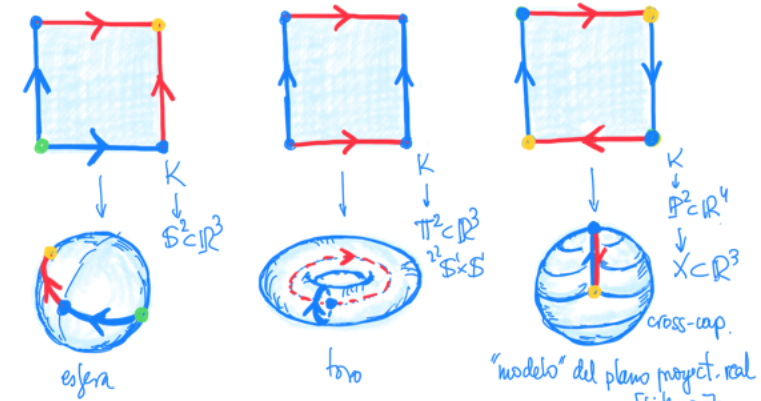 K
↓
S²⊂ℝ³
esfera
K
↓
𝕋²⊂ℝ³
S¹×S¹
toro
K
↓
ℙ²⊂ℝ⁴
↓
X⊂ℝ³
cross-cap.
"modelo" del plano proyect. real